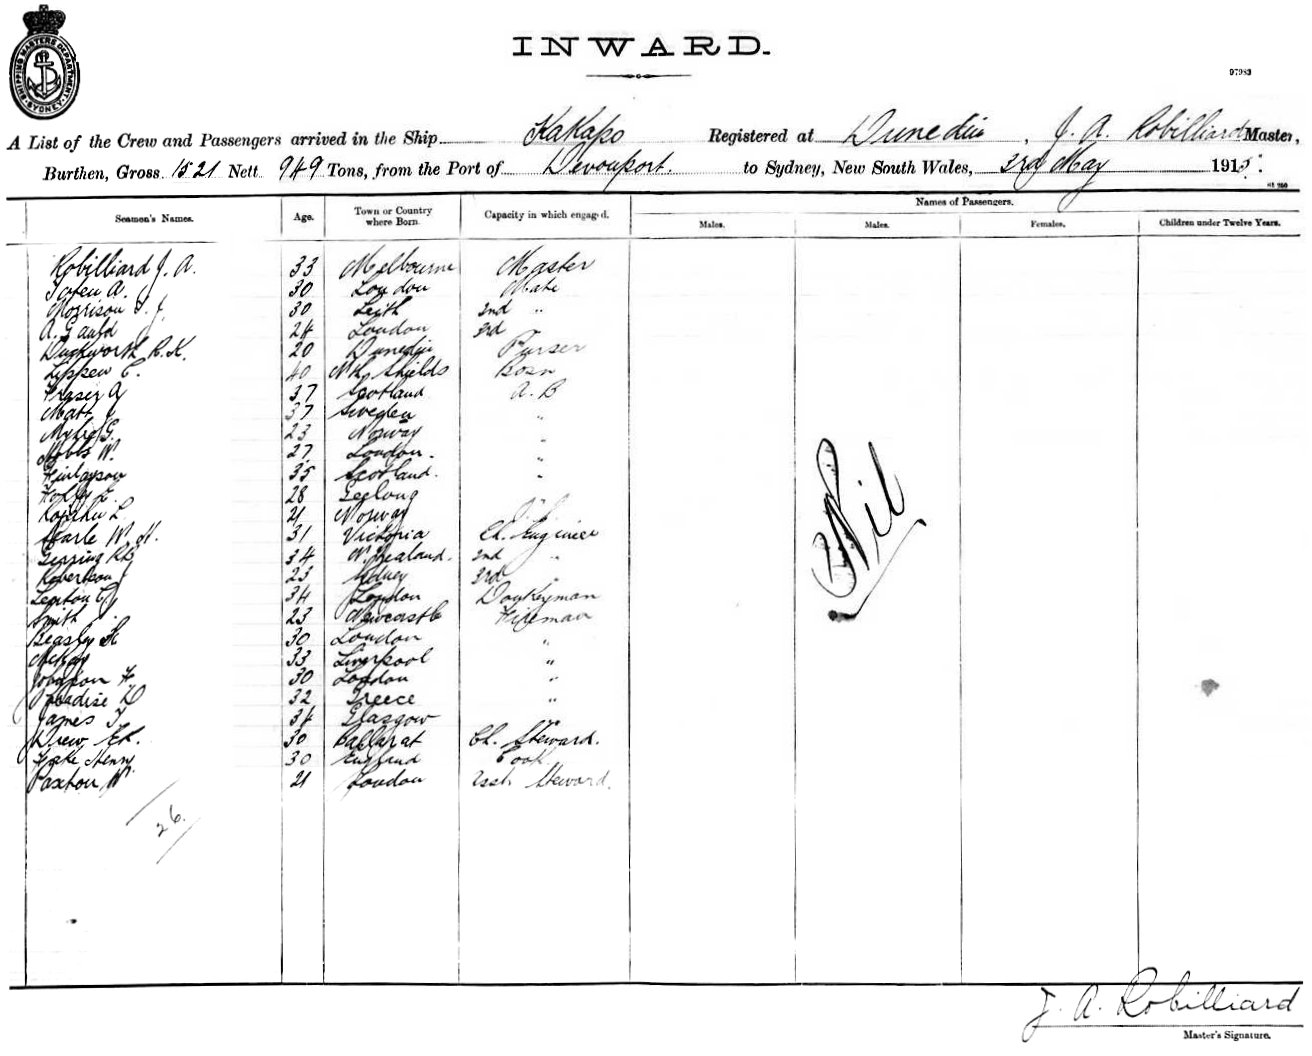 SHIPPING MASTERS DEPARTMENT SYDNEY
INWARD.
97983
A List of the Crew and Passengers arrived in the Ship Kakapo Registered at Dunedin, J. A. Robilliard Master,
Burthen, Gross 1521 Nett 949 Tons, from the Port of Devonport. to Sydney, New South Wales, 3rd May 1915.
Seamen's Names. Age. Town or Country where Born. Capacity in which engaged. Names of Passengers.
Males. Males. Females. Children under Twelve Years.
Robilliard J. A. 33 Melbourne Master
A. 30 London Mate
Morrison 30 Leith 2nd "
A. Gauld 24 London 3rd "
Duckworth R. K. 20 Dunedin Purser
C. 40 Nth Shields Bosn
Fraser A 37 Scotland A. B
Matt J 37 Sweden "
G. 23 Norway "
Hobbs W. 27 London. "
Finlayson 35 Scotland. "
28 Geelong
L 21 Norway
Searle W. H. 31 Victoria Ch. Engineer
34 N. Zealand. 2nd "
Robertson 23 Sydney 3rd "
34 London Donkeyman
Smith 23 Newcastle Fireman
Beasley 30 London "
McKay 33 Liverpool "
Johnson H. 30 London "
Paradise D 32 Greece "
James T 34 Glasgow "
Drew 30 Ballarat Ch. Steward.
Henry 30 England Cook
Paxton W 21 London Asst Steward.
Nil
26.
J. A. Robilliard
Master's Signature.